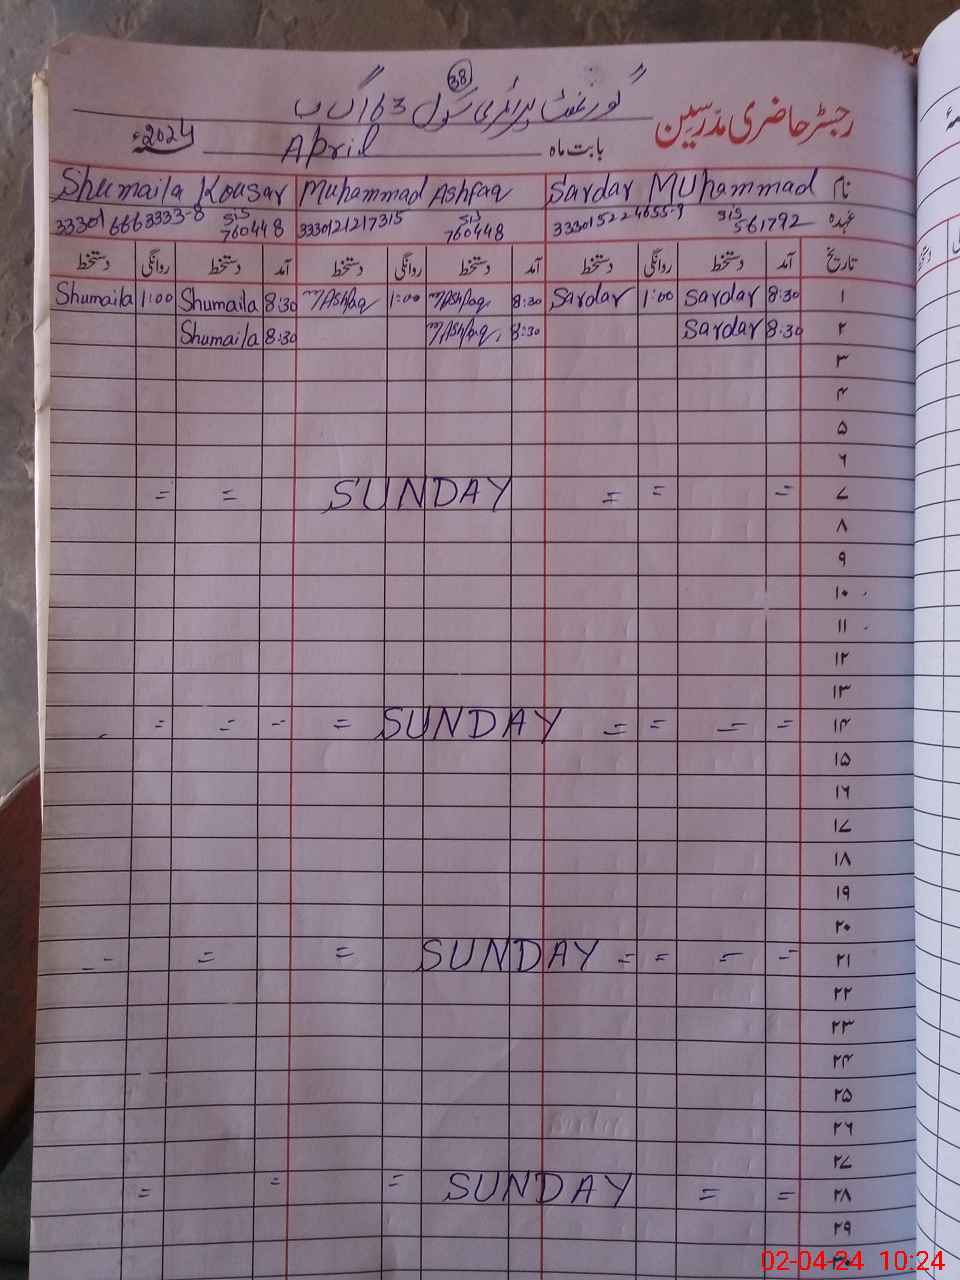 38
گورنمنٹ پرائمری سکول 163 گ ب
رجسٹر حاضری مدرسین
بابت ماہ April 2024ء
نام Sardar MUhammad Muhammad Ashfaq Shumaila Kousar
عہدہ 333015224655-9 SIS 561792 3330121217315 SIS 760448 333016663333-8 SIS 760448
تاریخ آمد دستخط روانگی دستخط آمد دستخط روانگی دستخط آمد دستخط روانگی دستخط
۱ 8:30 Sardar 1:00 Sardar 8:30 M Ashfaq 1:00 M Ashfaq 8:30 Shumaila 1:00 Shumaila
۲ 8:30 Sardar 8:30 M Ashfaq 8:30 Shumaila
۳
۴
۵
۶
۷ = = = SUNDAY = =
۸
۹
۱۰
۱۱
۱۲
۱۳
۱۴ = = = = SUNDAY = = = =
۱۵
۱۶
۱۷
۱۸
۱۹
۲۰
۲۱ = = = = SUNDAY = = - -
۲۲
۲۳
۲۴
۲۵
۲۶
۲۷
۲۸ = = SUNDAY = = =
۲۹
۳۰
02-04-24 10:24